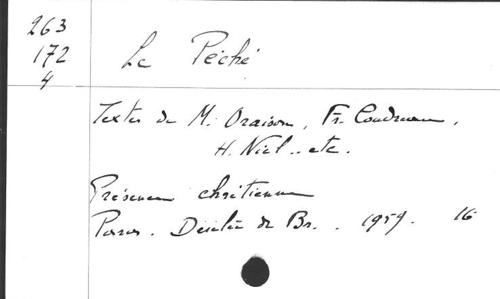 263
172
4
Le Péché
Textes de M. Oraison, Fr. Coudreau,
H. Niel.. etc.
Présence chrétienne
Desclée de Br. . 1959. 16